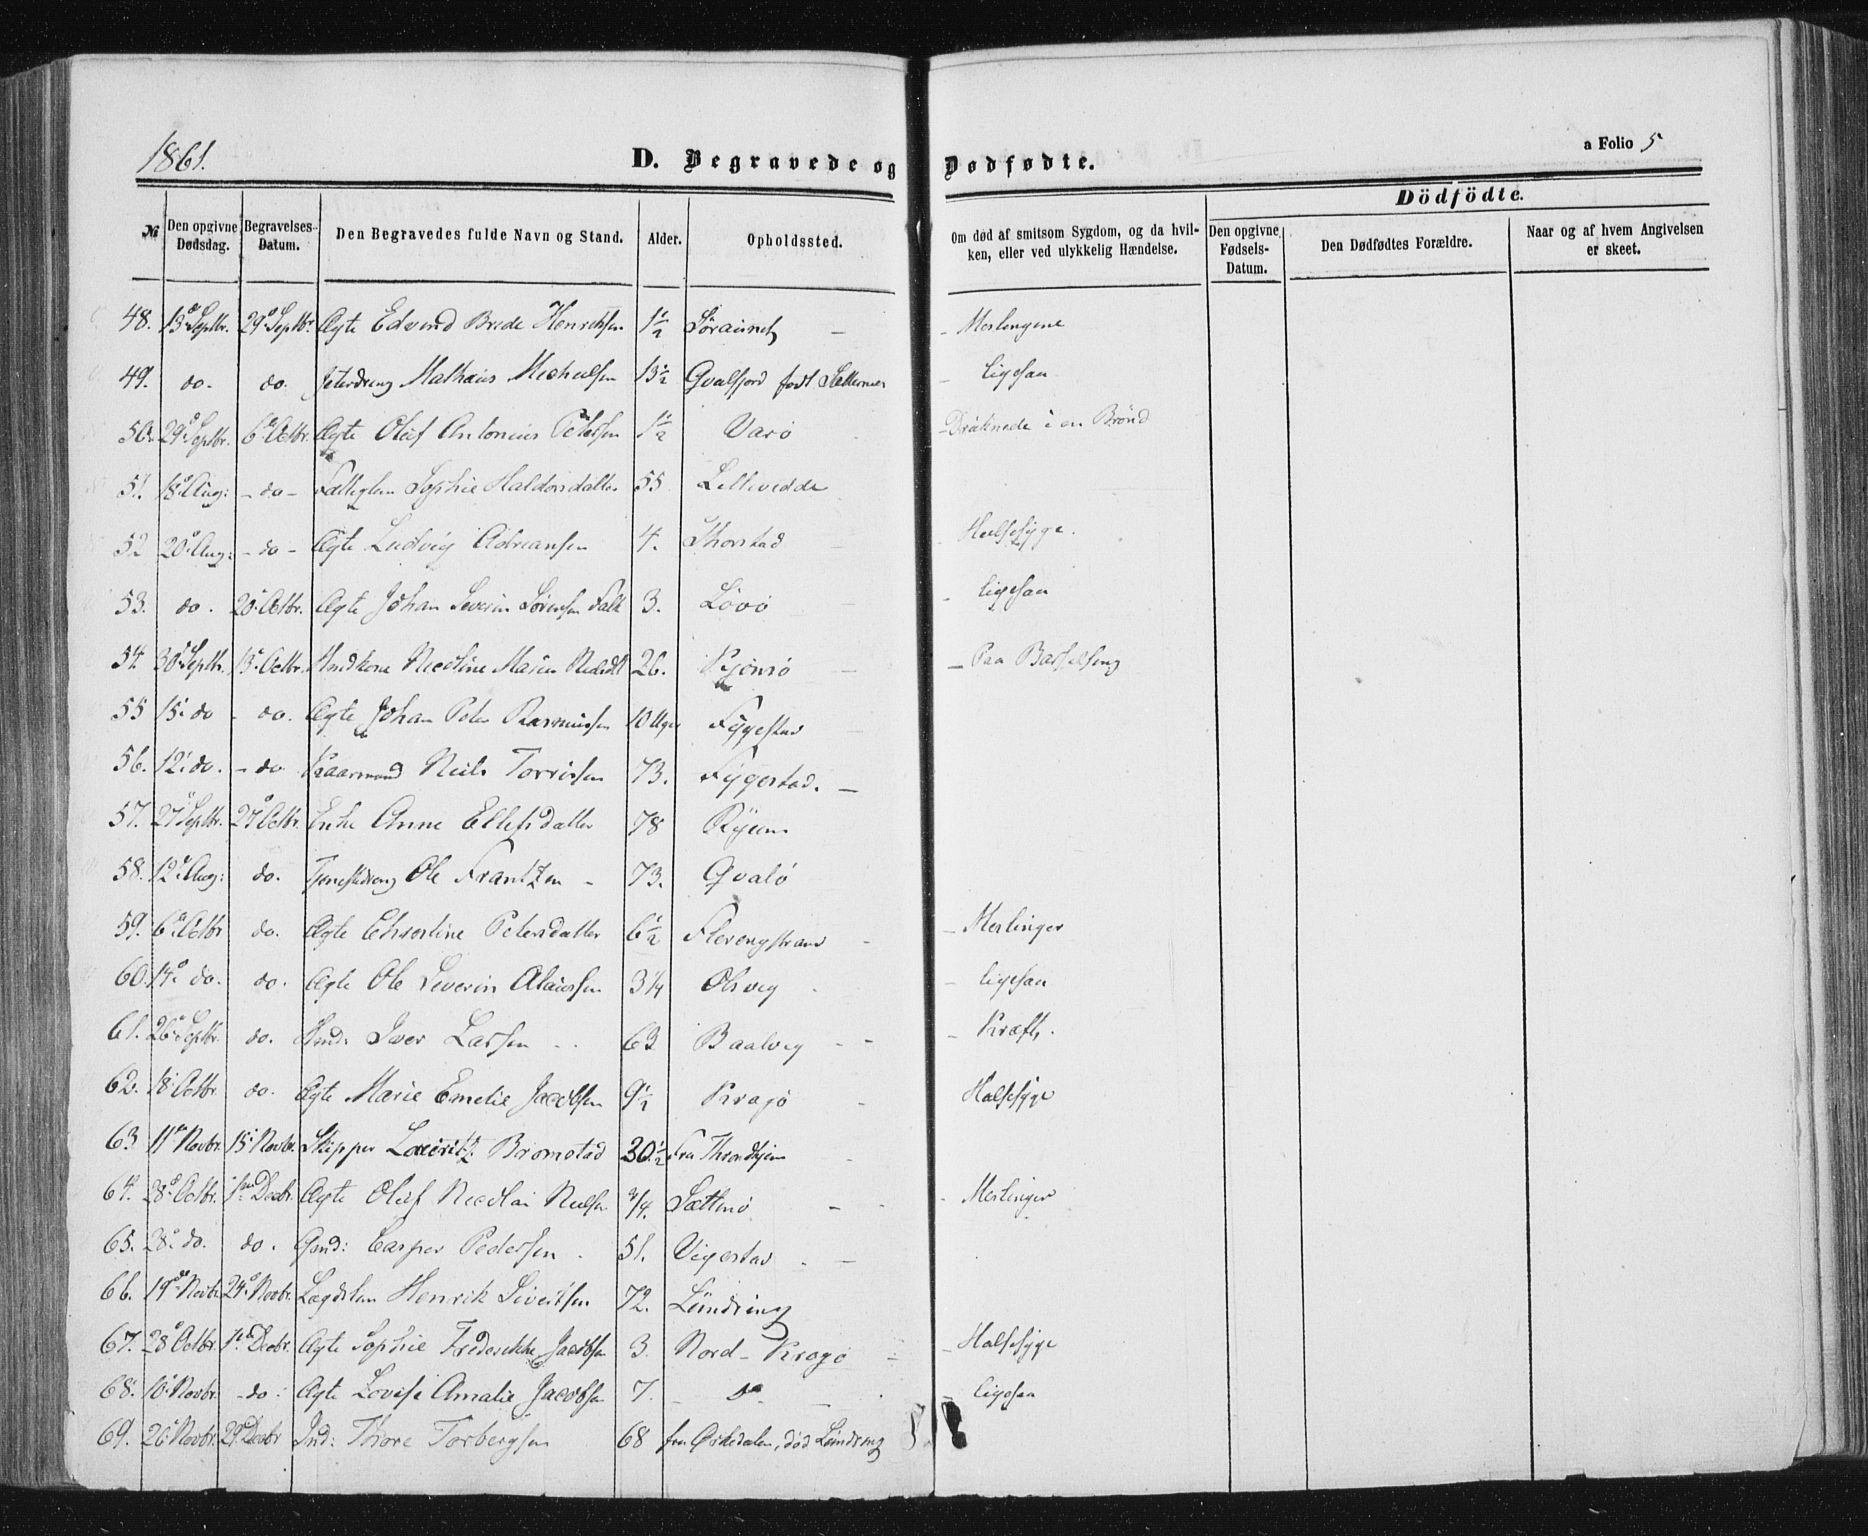 1861.
D. Begravede og Dødfødte.
a Folio 5
Dödfödte.
№ Den opgivne Dødsdag. Begravelses-Datum. Den Begravedes fulde Navn og Stand. Alder. Opholdssted. Om død af smitsom Sygdom, og da hvilken, eller ved ulykkelig Hændelse. Den opgivne Fødsels-Datum. Den Dødfødtes Forældre. Naar og af hvem Angivelsen er skeet.
48. 13. Septbr. 29. Septbr. Ægte Edvind Brede Henriksen 1½ - Meslingene
49. do. do. Mathæus Michelsen 13½ Gvalfjord født - ligesaa
50. 29. Septbr. 6. Octbr. Ægte Oluf Antonius Petersen 1½ Varø - Druknede i en Brönd
51. 18. Aug: - do - Sophie Haldorsdatter 55 Lillevedde
52 20. Aug: - do - Ægte Ludvig Adriansen 4. Thorstad - Halsesyge.
53. do. 20. Octbr. Ægte Johan Severin Sörensen Falk 3. Lövö - ligesaa
54. 30. Septbr. 13. Octbr. Nicoline 26. - Paa Barselseng
55 15. do - do. Ægte Johan Peter Rasmussen 10 Uger Fyggestad
56. 12. do. - do Kaarmand Neils Torrissen 73. Fyggestad.
57. 27 Septbr. 27 Octbr. Enke Anne Ellefsdatter 78
58. 12. Aug: do. Tjenestdreng Ole Frantzen - 73. Gvalö
59. 6. Octbr do. Ægte Christine Petersdatter 6½ Flerengstrand - Meslinger
60. 14. do. do. Ægte Ole Severin Olaussen 3¼ Olsvig - ligesaa
61. 26. Septbr. do. Ind: Iver Larsen 63 Baalvig - Kræft.
62. 18. Octbr do. Ægte Marie Emelie Jacobsen 9½ Kragö Halsesyge
63 11. Novbr. 15. Novbr. Skipper Lauritz Bromstad 30½ Fra Throndhjem
64. 28. Octbr. 1ste Decbr. Ægte Oluf Nicolai Nielsen ¾. Sættenö - Meslinger
65. 28. do. do. Gmd: Casper Pedersen 51. Vigestad
66. 19de Novbr. 24. Novbr. Lægdslem Henrik Sivertsen 72. Leindring
67. 28 Octbr. 1ste Decbr. Ægte Sophie Frederikke Jacobsen 3. Nord-Kragö - Halsesyge
68. 10. Novbr. - do - Ægte Lovise Amalie Jacobsen 7. - do - - ligesaa
69. 26. Novbr. 29. Decbr Ind: Thore Torbergsen 68 fra Ørkedalen, död Leindring